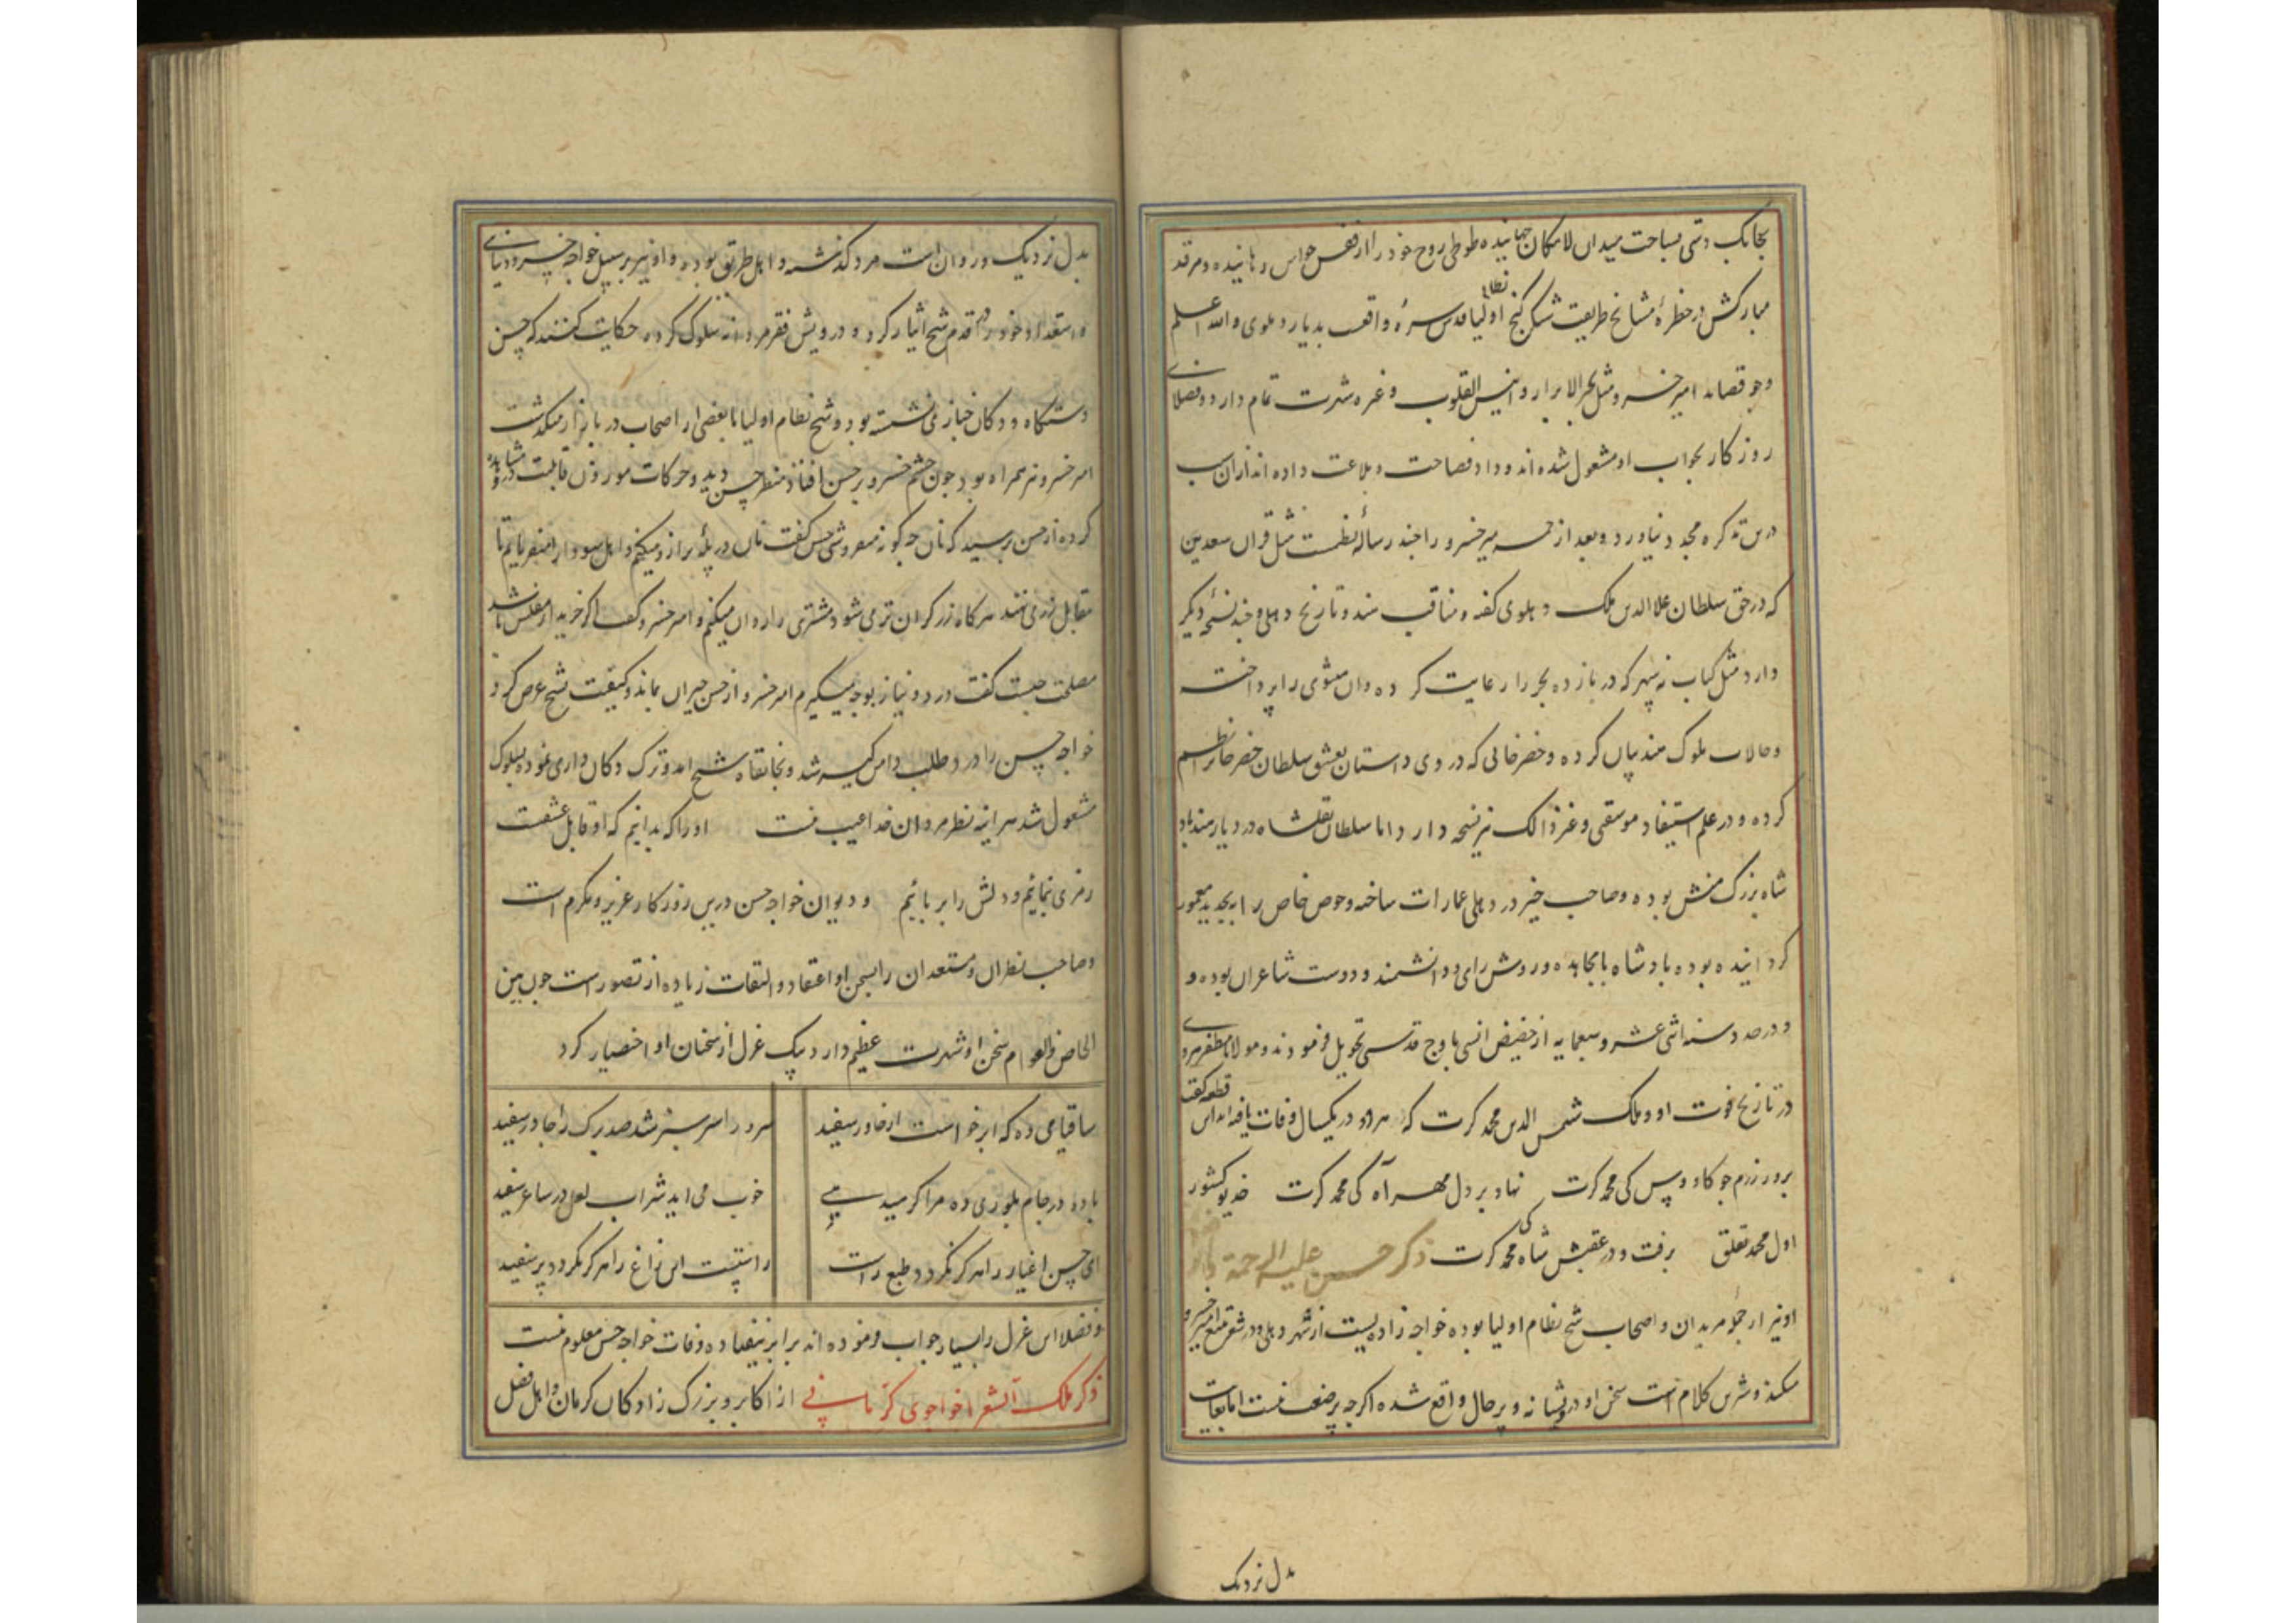 بچابک دستی مساحت میدان لامکان جهانیده طوطی روح خود را از قفس حواس رهانیده و مرقد
مبارکش در خطرهٔ مشایخ طریقت شکر گنج نظام اولیا قدس سره واقعست بدیار دهلوی والله اعلم
وجو قصاید امیر خسرو مثل بحر الابرار و انیس القلوب و غیره شهرت تمام دارد و فضلای
روزکار بجواب او مشغول شده اند و داد فصاحت و بلاغت داده اند از ان سبب
درین تذکره مجد دنیاورد و بعد از خمسه میر خسرو را چند رساله نظمست مثل قران سعدین
که در حق سلطان علا الدین ملک دهلوی کفته و مناقب هند و تاریخ دهلی و چند نسخه دیکر
دارد مثل کتاب نه سپهر که در بازده بحر را رعایت کرده و ان مثنوی را پرداخته
و حالات ملوک هند بیان کرده و خضرخانی که در وی داستان عشق سلطان خضر خان نظم
کرده و در علم استیفا و موسقی و غیر ذالک نیز نسخه دارد اما سلطان تغلشاه در دیار هند باد
شاه بزرک منش بوده و صاحب خیر در دهلی عمارات ساخته و حوض خاص را بتجدید معمور
کردانیده بوده بادشاه با مجاهده و روشن رای و دانشمند و دوست شاعران بوده و
و در صد و سنه اثنی عشر و سبعمایه از حضیض انسی باوج قدسی تحویل فرمودند و مولانا مظفر هروی
در تاریخ فوت او و ملک شمس الدین محمد کرت که هر دو در یکسال وفات یافته اند این قطعه کفت
بروز رزم جو کاووس کی محمد کرت نهاد بر دل مهر آه کی محمد کرت خدیو کشور
اول محمد تغلق برفت و در عقبش شاه کی محمد کرت ذکر حسن علیه الرحمة
او نیز از جمله مریدان و اصحاب شیخ نظام اولیا بوده خواجه زاده یست از شهر دهلی و در شعر متبع خسرو
میکند و شیرین کلام است سخن او درویشانه و پر حال واقع شده اکرچه پر صنعت نیست اما بغایت
بدل نزدیک
بدل نزدیک و روان است مرد کذشته و اهل طریق بوده و او نیز بر سبیل خواجه خسرو دنیای
و استعداد خود را در قدم شیخ ایثار کرده و درویش فقر مردانه سلوک کرده حکایت کنند که حسن
دستکاه و دکان خبازی نشسته بود و شیخ نظام اولیا با بعضی از اصحاب در بازار میکذشت
امیر خسرو نیز همراه بود جون چشم خسرو بر حسن افتاد منظر حسن دید و حرکات موزون قابلیت درو مشاهده
کرده از حسن پرسید که نان جه کونه میفروشی حسن کفت نان در پلهٔ ترازو میکنم و اهل سودا را میفرمایم تا
مقابل زر می نهند هر کاه زر کران تر می شود مشتری را روان میکنم و امیر خسرو کفت اکر خریدار مفلس باشد
مصلحت جیست کفت درد و نیاز بوجه میکیرم امیر خسرو از حسن حیران بماند و کیفیت شیخ عرض کرد
خواجه حسن را درد طلب دامن کیر شد و بخانقاه شیخ امد و ترک دکان داری نموده بسلوک
مشغول شد هر اینه نظر مردان خدا عیب نیست او را که بدانیم که او قابل عشقست
رمزی بنمایم و دلش را بربائیم و دیوان خواجه حسن درین روزکار عزیز و مکرم است
و صاحب نظران و مستعدان را بسخن او اعتقاد و التفات زیاده از تصور است جون بین
الخاص والعوام سخن او شهرت عظیم دارد یک غزل از سخنان او اختیار کرد
ساقیا می ده که ابر خواست از خاور سفید سرو را سر سبز شد صد برک را جادر سفید
باده در جام بلوری ده مرا کر میدهی خوب می اید شراب لعل در ساغر سفید
ای حسن اغیار را هرکز نکردد طبع راست راستیست این زاغ را هرکز نکردد پر سفید
و فضلا این غزل را بسیار جواب فرموده اند برابر نیفتاده وفات خواجه حسن معلوم نیست
ذکر ملک الشعرا خواجوی کرمانی از اکابر و بزرک زادکان کرمان و اهل فضل